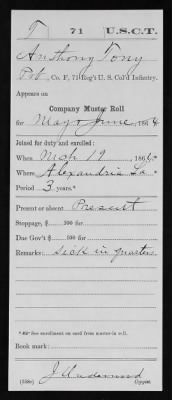 T 71 U.S.C.T.
Anthony Tony
Pvt, Co. F, 71 Reg't U. S. Col'd Infantry.
Appears on
Company Muster Roll
for May & June, 1864
Joined for duty and enrolled:
When Mch 19, 1864.*
Where Alexandria La*
Period 3 years.*
Present or absent Present
Stoppage, $ 100 for
Due Gov't $ 100 for
Remarks: Sick in quarters
*See enrollment on card from muster-in roll.
Book mark:
(358c) Copyist.